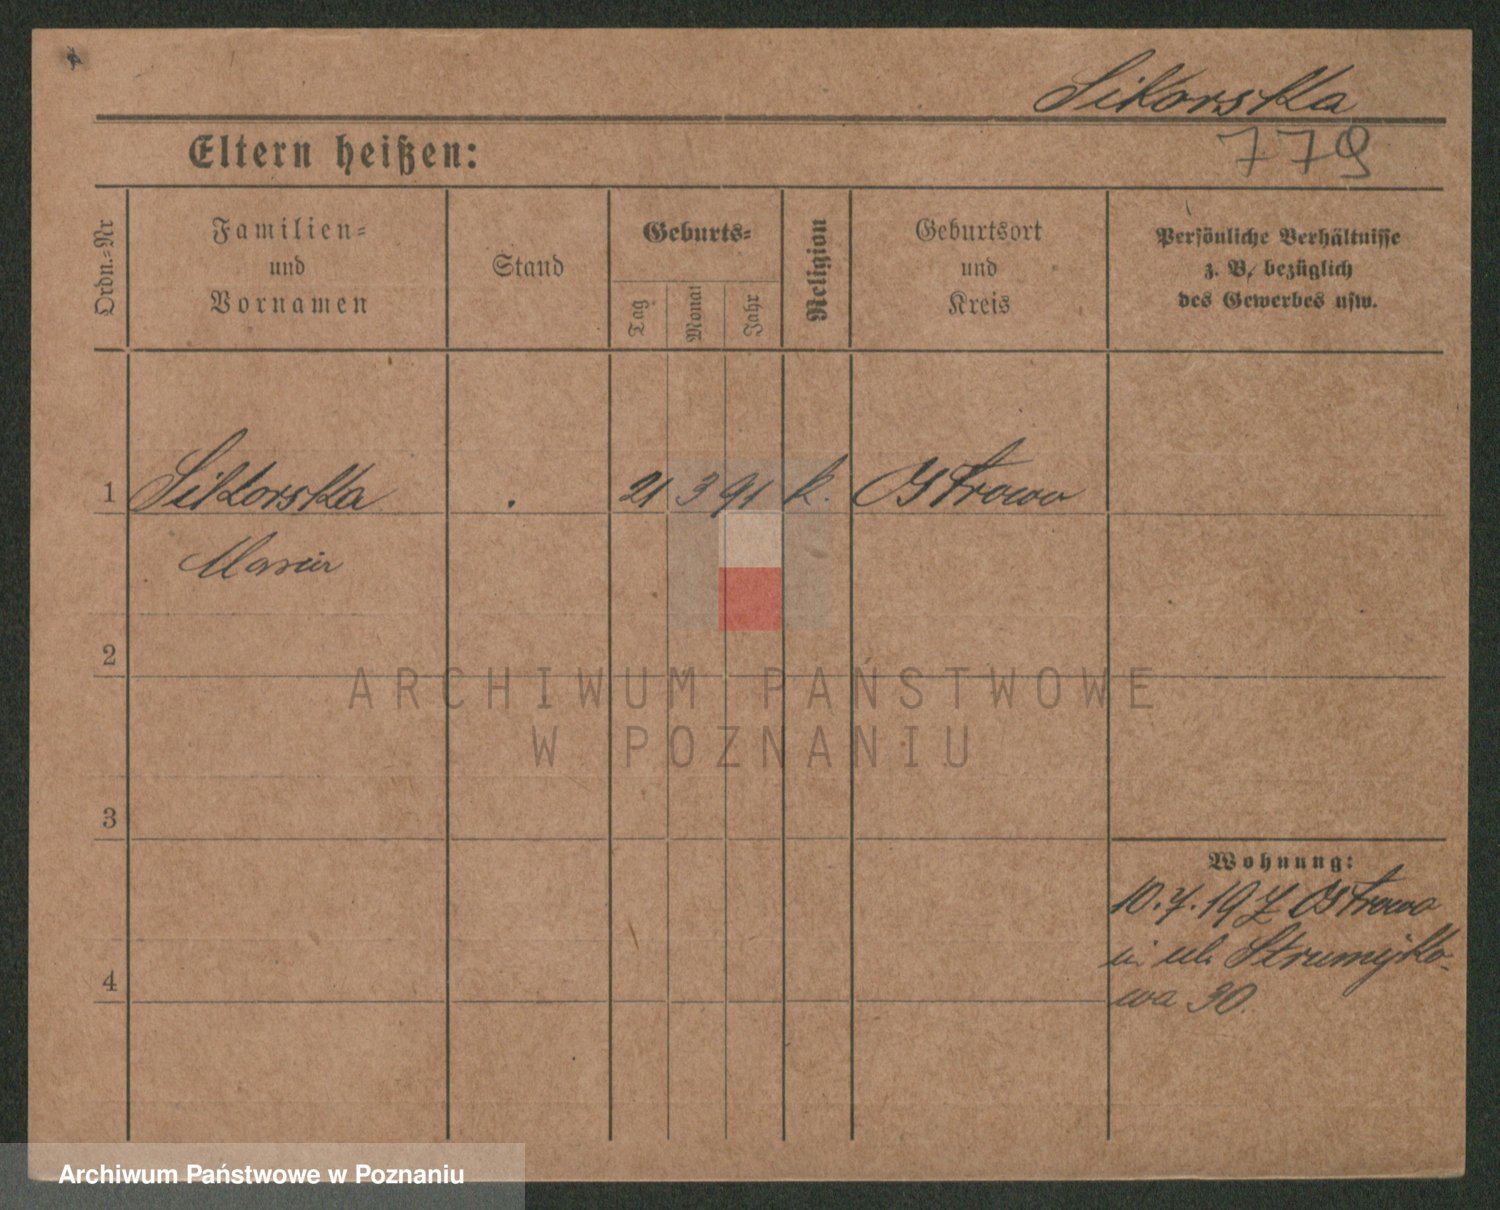 Sikorska
Eltern heißen:
779
Ordn.-Nr
Familien-
und
Vornamen
Stand
Geburts-
Tag
Monat
Jahr
Religion
Geburtsort
und
Kreis
Persönliche Verhältnisse
z. B. bezüglich
des Gewerbes usw.
1 Sikorska . 21 3 91 k. Ostrowo
2
3
4
Wohnung:
10.7.19 Z Ostrowo
ul. Strumyko-
wa 30.
ARCHIWUM PAŃSTWOWE
W POZNANIU
Archiwum Państwowe w Poznaniu